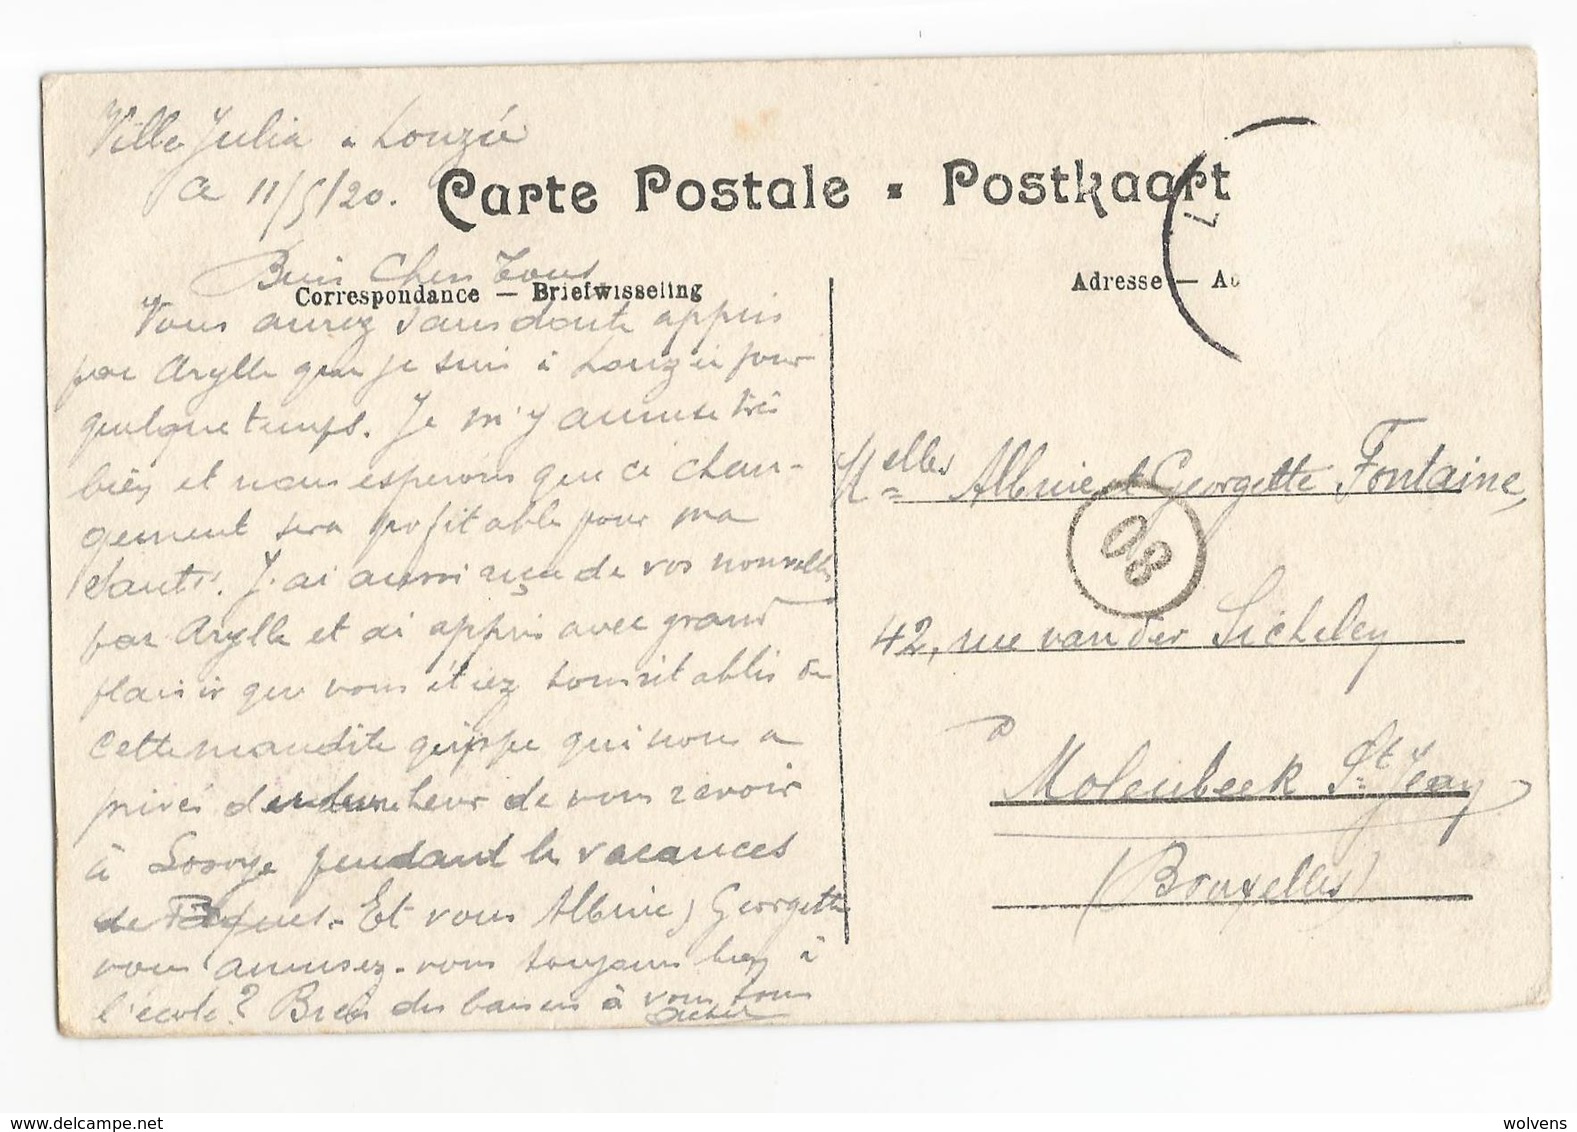 Villa Julia à Louzée
Ce 11/5/20.
Carte Postale - Postkaart
Bien Chers Tous
Correspondance — Briefwisseling
Adresse —
Vous aurez sans doute appris
par Arylle que je suis à Louzée pour
quelque temps. Je m'y amuse très
bien et nous esperons que ce chan-
gement sera profitable pour ma
santé. J'ai aussi reçu de vos nouvelles
par Arylle et ai appris avec grand
plaisir que vous étiez tous rétablis de
cette maudite grippe qui nous a
privés du bonheur de vous revoir
à Sosoye pendant les vacances
de Pâques. Et vous Albinie, Georgette
vous amusez-vous toujours bien à
l'école? Bref des baisers à vous tous
Melles Albinie et Georgette Fontaine,
08
42, rue van der
à
Molenbeek St Jean
(Bruxelles)
wolvens